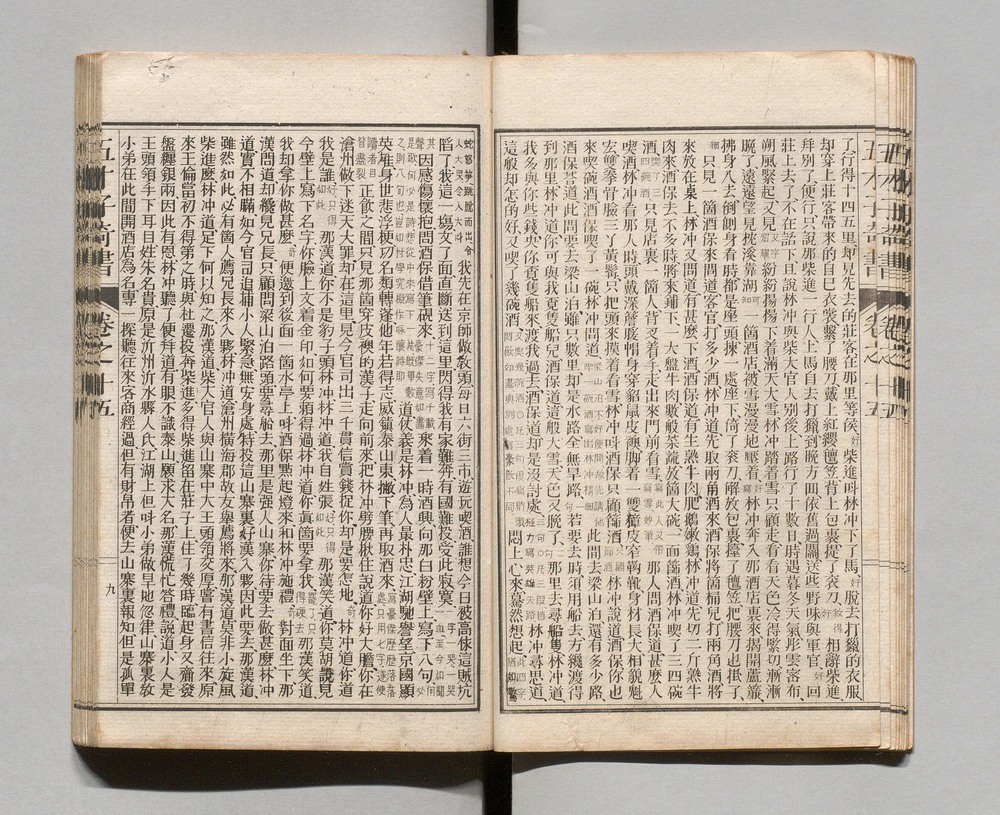 了行得十四五里却見先去的莊客在那里等侯好柴進呌林冲下了馬好脫去打獵的衣服
却穿上莊客帶來的自己衣裳繫了腰刀戴上紅纓氊笠背上包裹提了衮刀好相辭柴進
拜別了便行只說那柴進一行人上馬自去打獵到晚方回依舊過關送些野味與軍官好回
莊上去了不在話下且說林冲與柴大官人別後上路行了十數日時遇暮冬天氣彤雲密布
朔風緊起又見紛紛揚揚下着滿天大雪林冲踏着雪只顧走看看天色冷得緊切漸漸
晚了遠遠望見枕溪靠湖一箇酒店被雪漫漫地壓着好林冲奔入那酒店裏來揭開蘆簾
拂身入去倒側身看時都是座頭揀一處座下倚了衮刀解放包裹擡了氊笠把腰刀也掛了
只見一箇酒保來問道客官打多少酒林冲道先取兩角酒來酒保將箇桶兒打兩角酒將
來放在桌上林冲又問道有甚麽下酒酒保道有生熟牛肉肥鵝嫩鷄林冲道先切二斤熟牛
肉來酒保去不多時將來鋪下一大盤牛肉數般菜蔬放箇大碗一面篩酒林冲喫了三四碗
酒只見店裏一箇人背叉着手走出來門前看雪那人問酒保道甚麽人
喫酒林冲看那人時頭戴深簷煖帽身穿貂鼠皮襖脚着一雙獐皮窄靿靴身材長大相貌魁
宏雙拳骨臉三丫黃髯只把頭來摸着看雪林冲呌酒保只顧篩酒林冲說道酒保你也
來喫碗酒酒保喫了一碗林冲問道此間去梁山泊還有多少路
酒保荅道此間要去梁山泊雖只數里却是水路全無旱路若要去時須用船去方纔渡得
到那里林冲道你可與我覔隻船兒酒保道這般大雪天色又晚了那里去尋船隻林冲道
我多與你些錢央你覔隻船來渡我過去酒保道却是沒討處林冲尋思道
這般却怎的好又喫了幾碗酒悶上心來驀然想起
我先在京師做敎頭每日六街三市遊玩喫酒誰想今日被高俅這賊坑
陷了我這一塲文了面直斷送到這里閃得我有家難奔有國難投受此寂寞
因感傷懷抱問酒保借筆硯來乘着一時酒興向那白粉壁上寫下八句
道仗義是林冲爲人最朴忠江湖馳譽望京國顯
英雄身世悲浮梗功名類轉蓬他年若得志威鎭泰山東撇下筆再取酒來
正飮之間只見那箇穿皮襖的漢子走向前來把林冲劈腰揪住說道你好大膽你在
滄州做下迷天大罪却在這里見今官司出三千貫信賞錢捉你却是要怎地林冲道你道
我是誰那漢道你不是豹子頭林冲林冲道我自姓張那漢笑道你莫胡說見
今壁上寫下名字你臉上文着金印如何要賴得過林冲道你眞箇要拿我那漢笑道
我却拿你做甚麽便邀到後面一箇水亭上呌酒保點起燈來和林冲施禮對面坐下那
漢問道却纔見兄長只顧問梁山泊路頭要尋船去那里是强人山寨你待要去做甚麽林冲
道實不相瞞如今官司追捕小人緊急無安身處特投這山寨裏好漢入夥因此要去那漢道
雖然如此必有箇人薦兄長來入夥林冲道滄州橫海郡故友舉薦將來那漢道莫非小旋風
柴進麽林冲道足下何以知之那漢道柴大官人與山寨中大王頭領交厚嘗有書信往來原
來王倫當初不得第之時與杜遷投奔柴進多得柴進留在莊子上住了幾時臨起身又齎發
盤纏銀兩因此有恩林冲聽了便拜道有眼不識泰山願求大名那漢慌忙答禮說道小人是
王頭領手下耳目姓朱名貴原是沂州沂水縣人氏江湖上但呌小弟做旱地忽律山寨裏敎
小弟在此間開酒店爲名專一探聽往來客商經過但有財帛者便去山寨裏報知但是孤單
五才子奇書
卷之十五
九